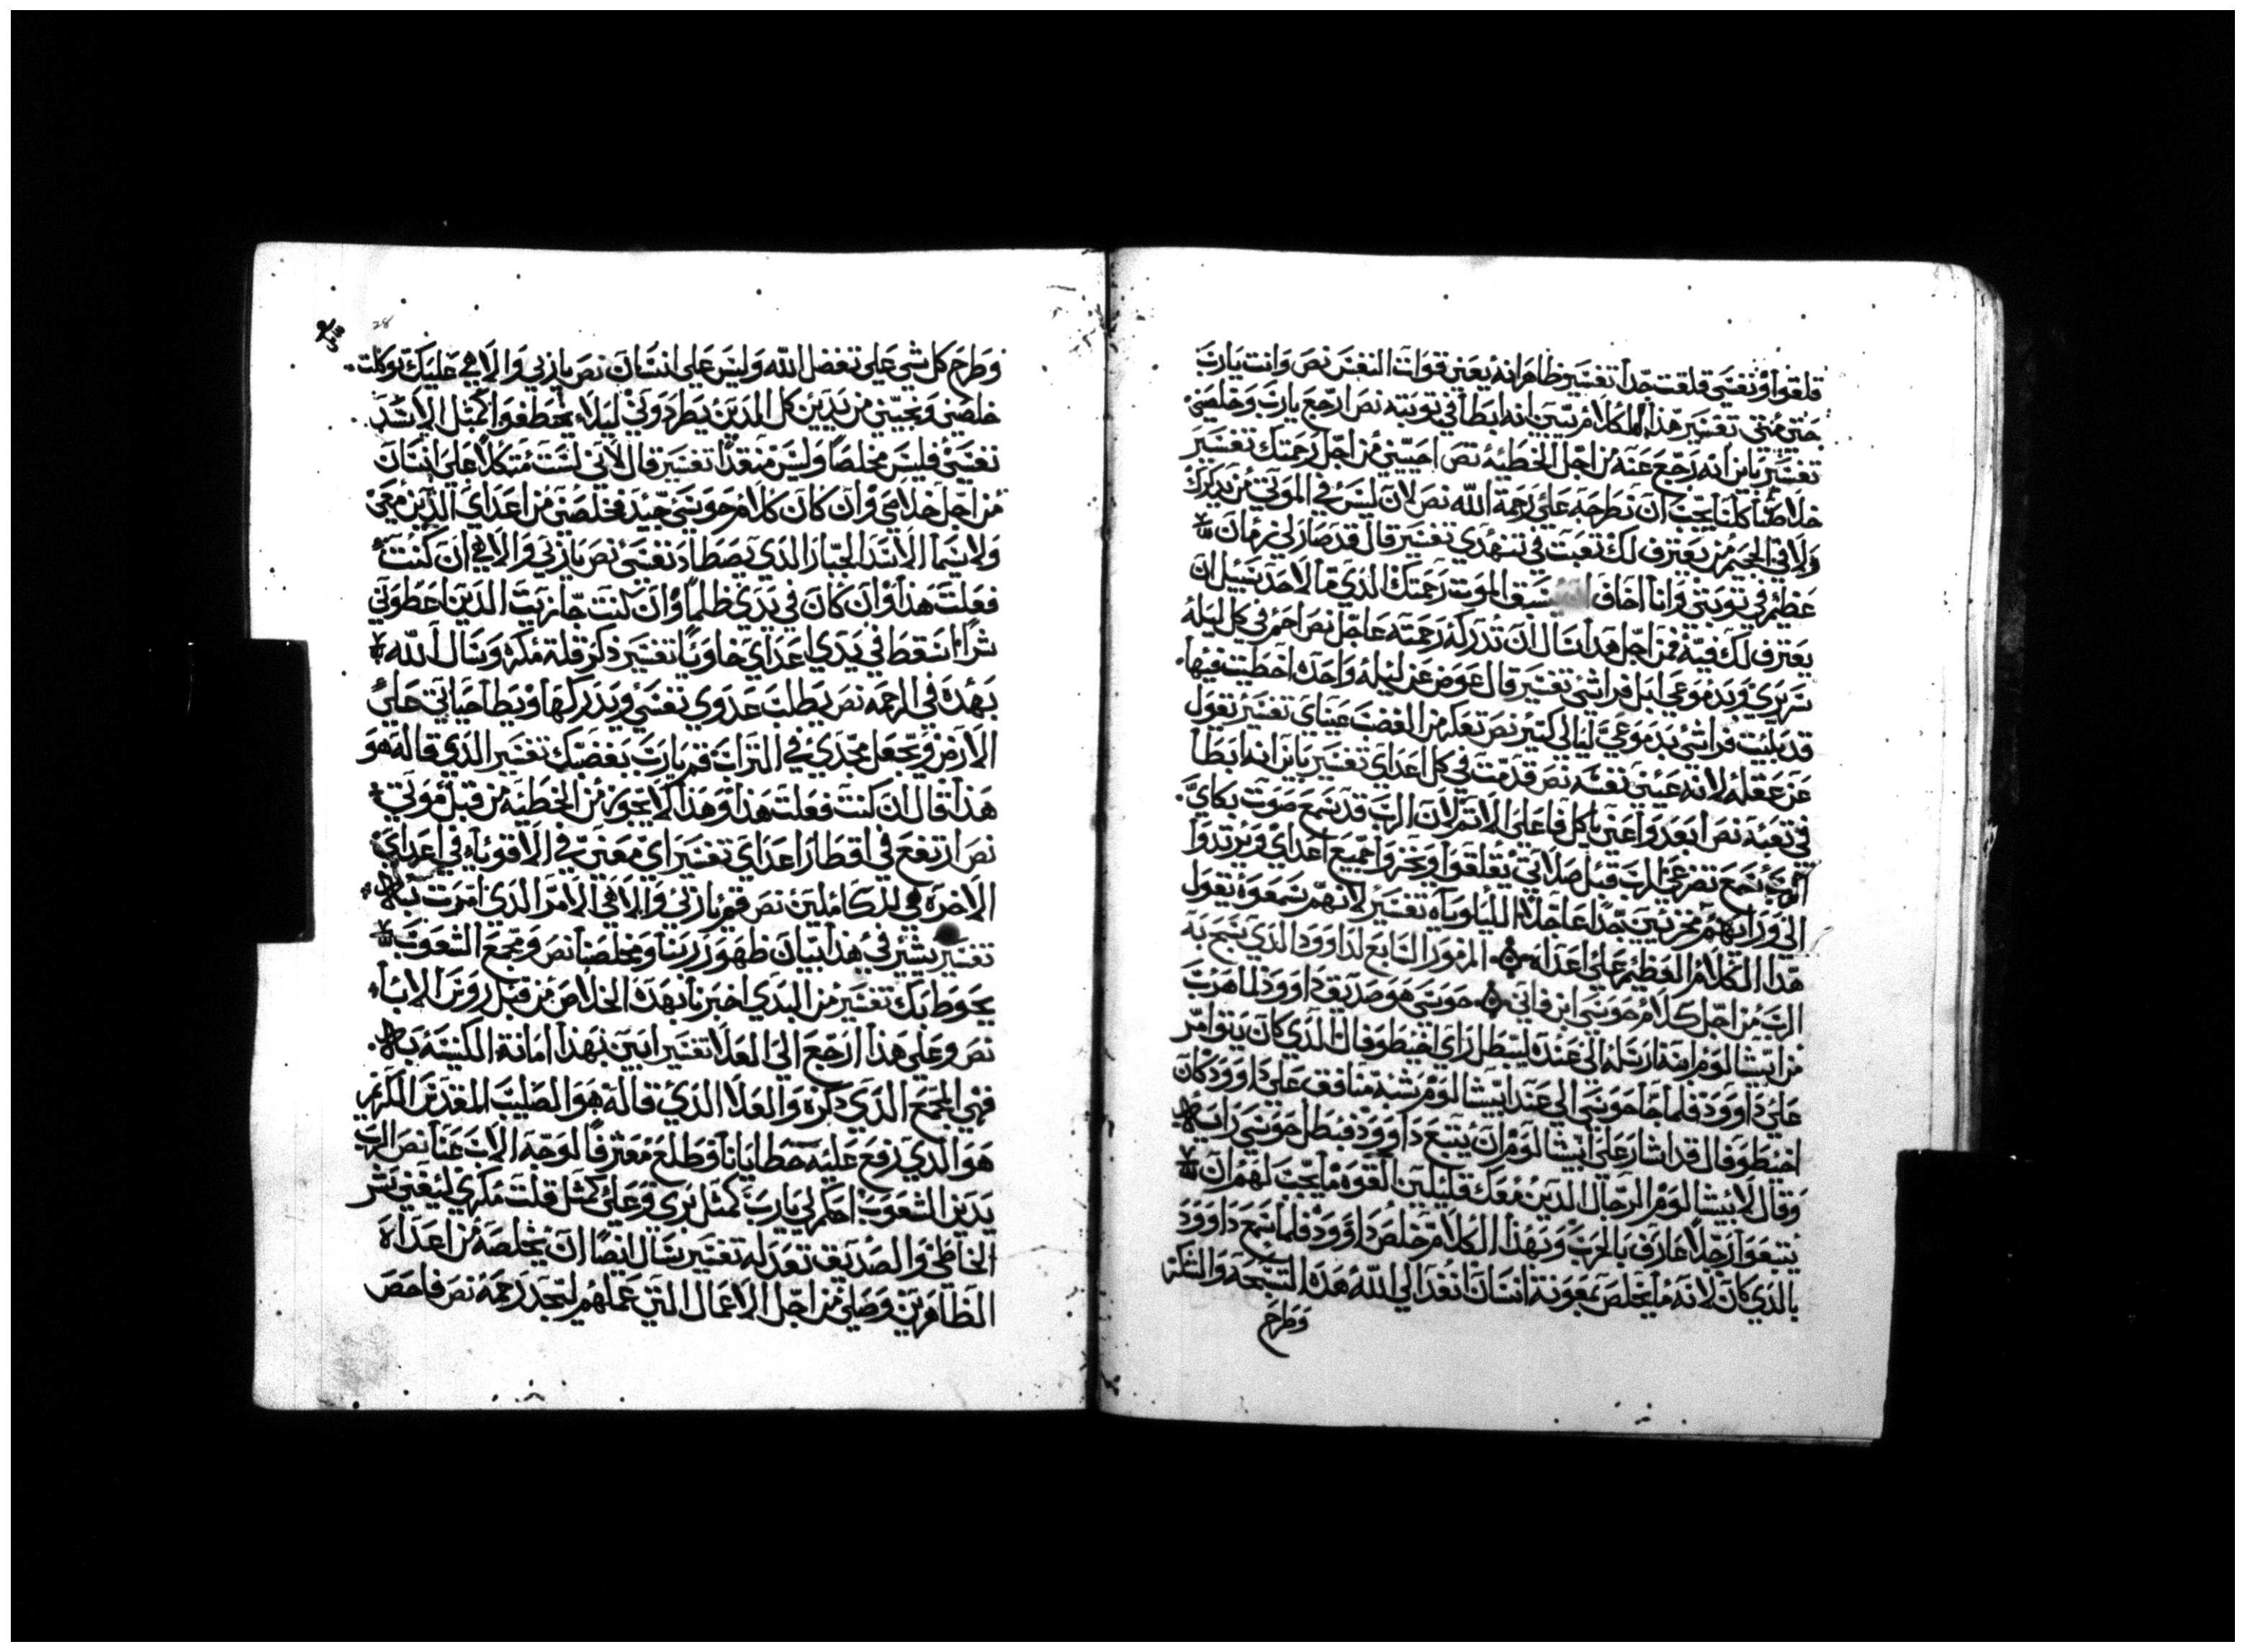 قلقوا ونفسي قلقت جداً تفسير وظاهر انه يعني قوات النفس نص وانت يارب
حتي متي تفسير هذا الكلام تبين انه ابطا في توبته نص ارجع يارب وخلصني
تفسير باين انه رجع عنه من اجل الخطية نص احييني من اجل رحمتك تفسير
خلاصنا كلنا يجب ان نطرحه علي رحمة الله نص لان ليس في الموتي من يدكرك
ولا في الجحيم من يعترف لك تعبت في تنهدي تفسير قال قد صار لي زمان
عظيم في توبتي وانا اخاف يسبق الموت رحمتك الذي ما لاحد سبيل ان
يعترف لك فيه فمن اجل هدا اسال ان تدركه رحمته عاجل نص احم في كل ليله
سريري وبدموعي ابل فراشي تفسير قال عوض عن ليله واحده اخطيت فيها
قد بليت فراشي بدموعي ليالي كتير نص تعكر من الغضب عيناي تفسير يقول
عن عقله لانه عين نفسه نص قدمت في كل اعداي تفسير باين انه ابطا
في تعبه نص ابعدوا عني ياكل فاعلي الاثم لان الرب قد سمع صوت بكاي
الرب سمع تضرعي الرب قبل صلاتي يقلقوا ويخزوا جميع اعداي ويرتدوا
الي ورايهم مخزيين جدا عاجلا الليلوياه تفسير لانهم سمعوه يقول
هدا الكلام العظيم علي اعداه المزمور السابع لداوود الذي يسبح به
الرب من اجل كلام حوسي ابن فاني حوسي هو صديق داوود لما هرب
من ابيشالوم ابنه ارسله الي عنده ليبطل راي اخيطوفال الذي كان يتوامر
علي داوود فلما جا حوسي الي عند ابيشالوم شبه منافق علي داوود وكان
اخيطوفال قد اشار علي ابيشالوم ان يتبع داوود فبطل حوسي رايه
وقال لابيشالوم الرجال الدين معك قليلين القوه ما يجب لهم ان
يتبعوا رجلا عارف بالحرب وبهدا الكلام خلص داوود فلما سمع داوود
بالدي كان لانه ما يخلص بمعونة انسان انفد الي الله هده التسبحه والشكر
وطرح
وطرح كل شي علي تفضل الله وليس علي انسان نص ياربي والاهي عليك توكلت
خلصني ونجيني من يدين كل الدين يطردوني ليلا يخطفوا كمثل الاسد
نفسي فليس مخلصا وليس منقدا تفسير قال لاني لست متكلا علي انسان
من اجل خلاصي وان كان كلام حوسي جيد فخلصني من اعداي الذين معي
ولا سيما الاسد الجبار الدي يصطاد نفسي نص ياربي والاهي ان كنت
فعلت هدا وان كان في يدي ظلما وان كنت جازيت الدين اعطوني
شرا اسقط في يدي اعداي خاويا تفسير دكر قلة مكره وسال الله
بهده في الرحمه نص يطلب عدوي نفسي ويدركها ويطا حياتي علي
الارض ويجعل مجدي في التراب قم يارب بغضبك تفسير الدي قاله هو
هدا قال ان كنت فعلت هدا وهدا لا يجوز من الخطيه من قبل موتي
نص ارتفع في اقطار اعداي تفسير اي معني في الاقوياء في اعداي
الاخره في الكاملين نص قم ياربي والاهي الامر الدي امرت به
تفسير يشير في هدا بيان ظهور ربنا ومخلصنا نص ومجمع الشعوب
يحوط بك تفسير من البدي اخبرنا بهده الخلاص من قبل روس الاباء
نص وعلي هدا ارجع الي العلا تفسير ابين بهدا امانة الكنيسه به
فهي المجمع الدي دكره والعلا الدي قاله هو الصليب المقدس المكرم
هو الدي رفع عليه خطايانا وطلع معترفا لوجه الاب عنا نص الرب
يدين الشعوب احكم لي يارب كمثل بري وعلي كمثل قلت مكري ليفني شر
الخاطي والصديق تعدله تفسير يسال النصا ان يخلصه من اعداه
الظاهرين وصلي من اجل الاعمال التي عملهم ليجد رحمه نص فاحص